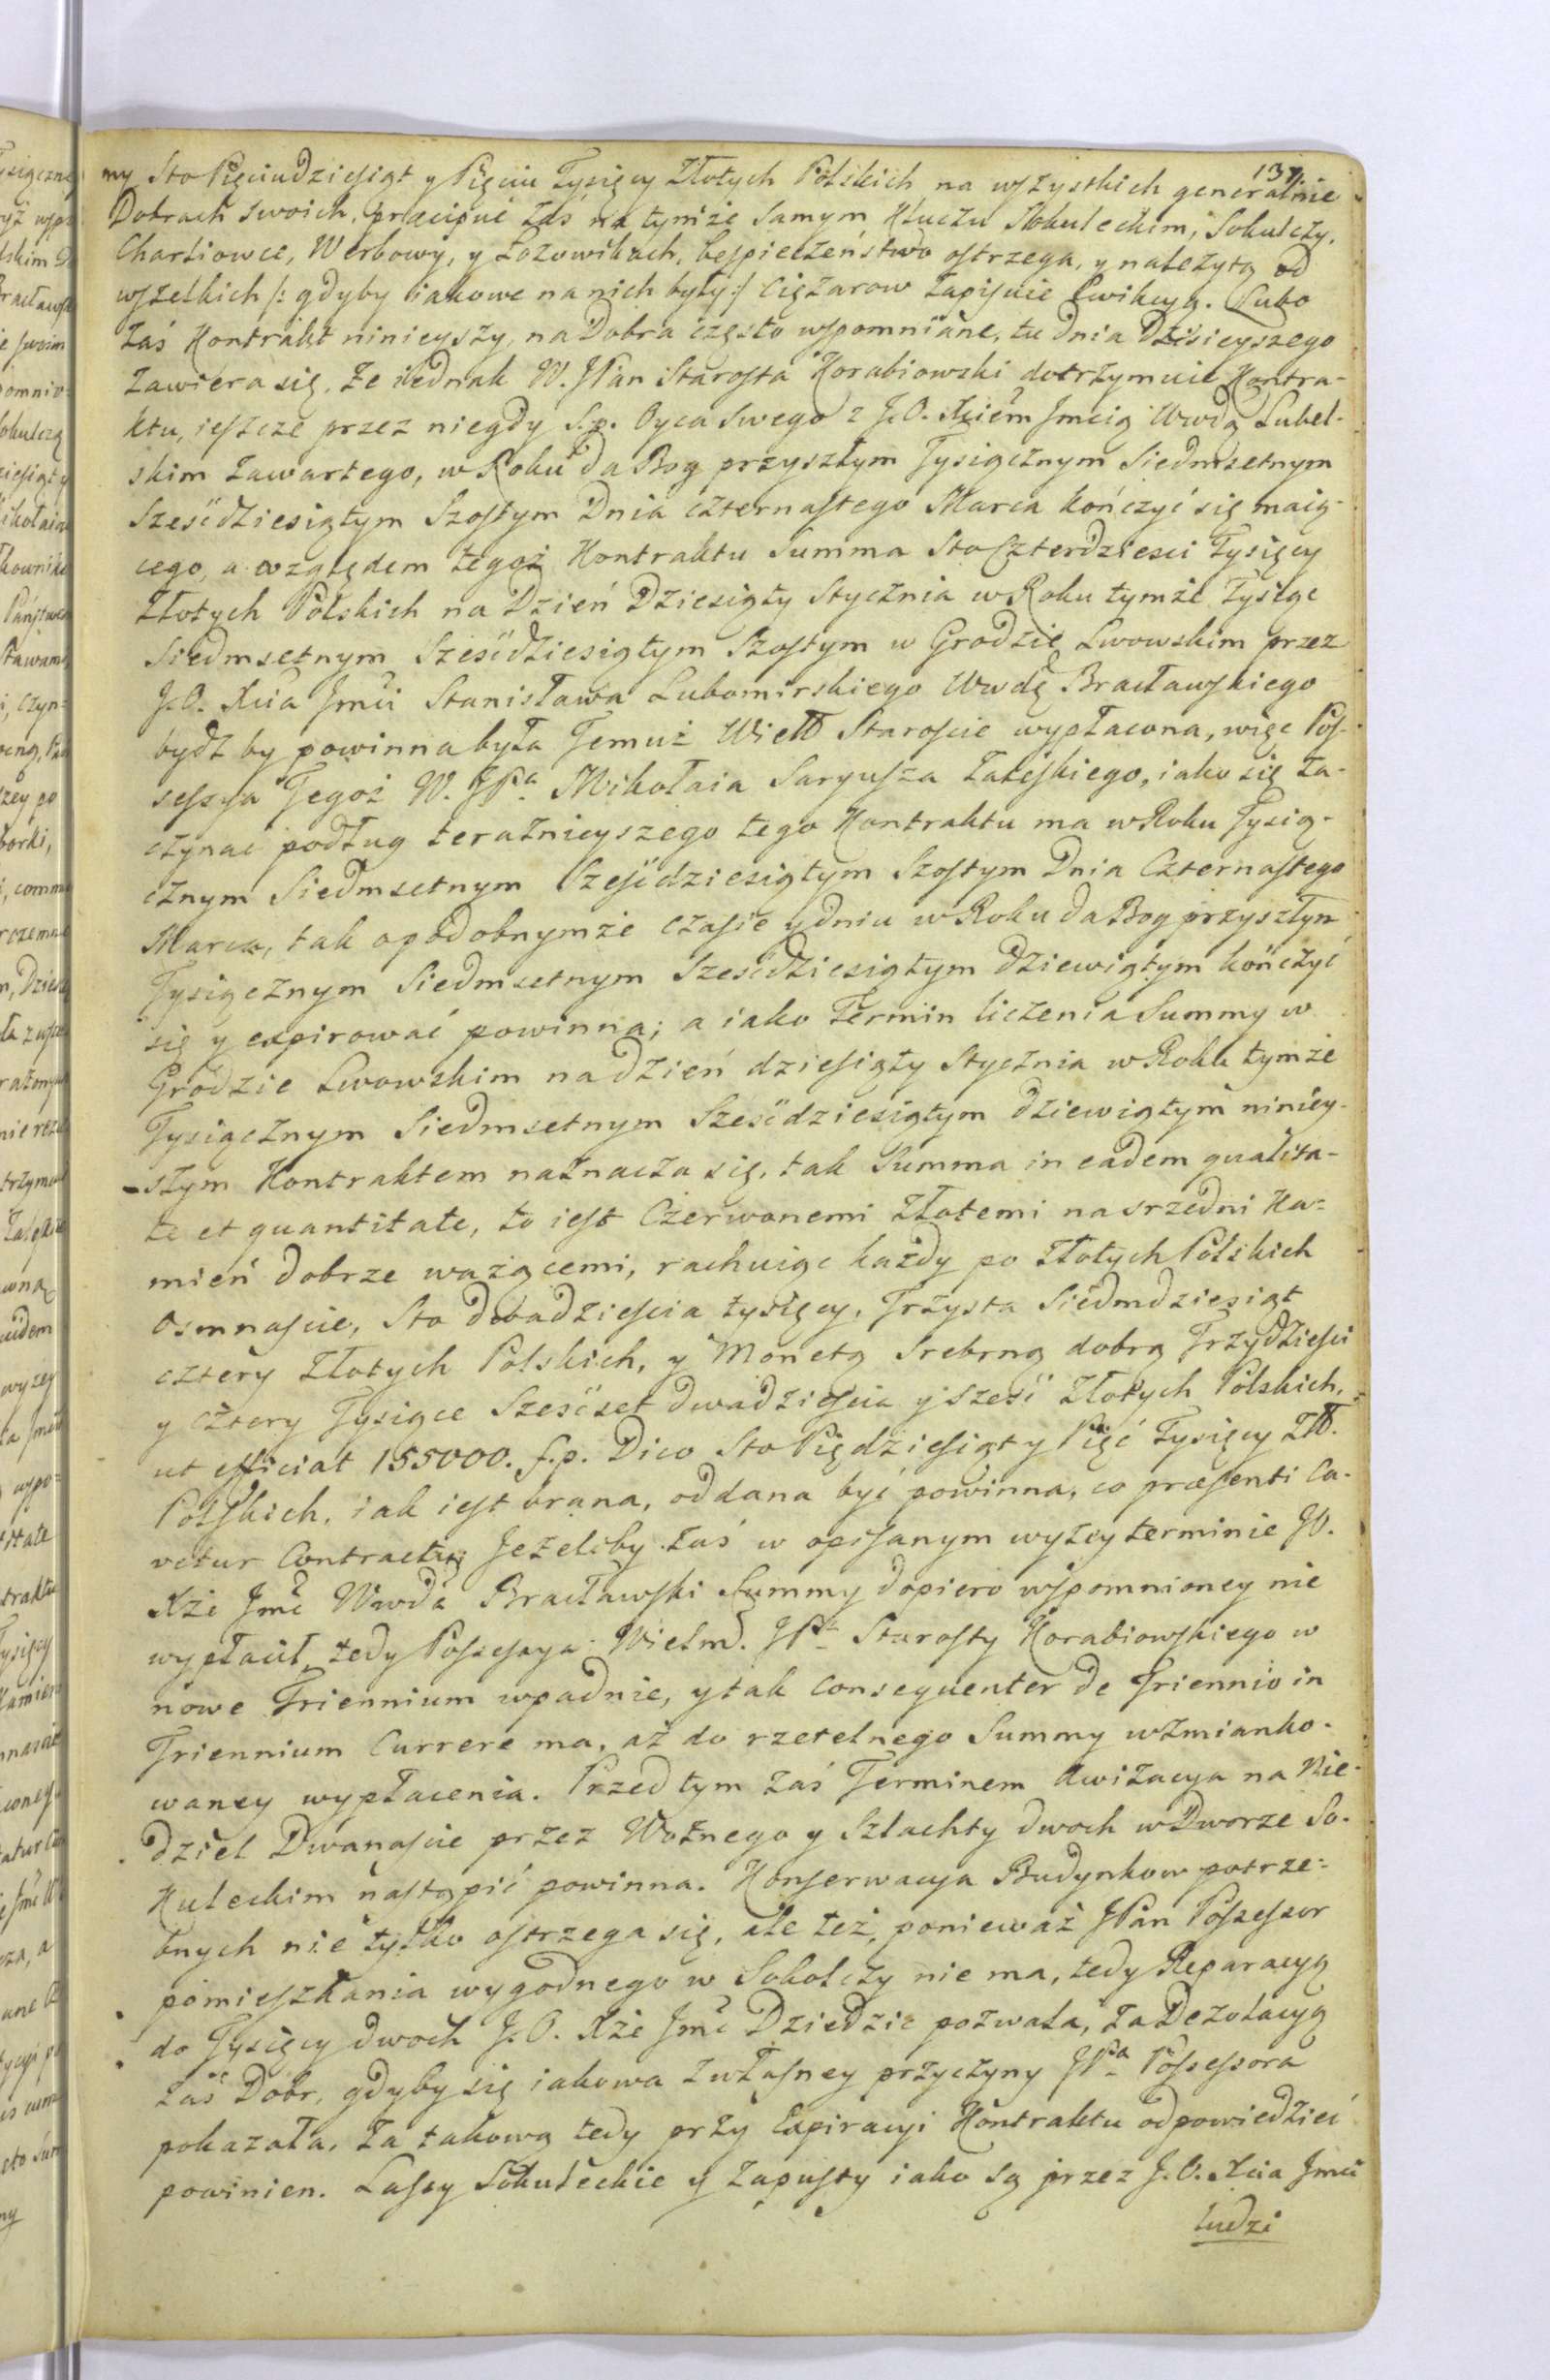 137.
my Sto Pięciudziesiąt y Pięciu Tysięcy Złotych Polskich na wszystkich generalnie
Dobrach swoich, præcipuè zaś na tymże samym Kluczu Sokuleckim, Sokulczy,
Charliowce, Werbowy, y Łozowikach, bespieczeństwo ostrzega, y należytą od
wszelkich /: gdyby iakowe na nich były :/ Ciężarow zapisuie Ewikcyą. Lubo
zaś Kontrakt ninieyszy, na Dobra często wspomniane, tu dnia dzisieyszego
zawiera się, że iednak W. JPan Starosta Korabiowski dotrzymuie Kontra-
ktu, ieszcze przez niegdy S.p. Oyca Swego z J.O. Xciem Jmcią Wwdą Lubel-
skim zawartego, w Roku da Bog przyszłym Tysiącznym Siedmsetnym
Sześćdziesiątym Szostym Dnia czternastego Marca kończyć się maią-
cego, a względem tegoż Kontraktu Summa Sto Czterdziesci Tysięcy
Złotych Polskich na Dzień Dziesiąty Stycznia w Roku tymże Tysiąc
Siedmsetnym Sześćdziesiątym Szostym w Grodzie Lwowskim przez
J.O. Xcia Jmci Stanisława Lubomirskiego Wwdę Bracławskiego
bydź by powinna była Temuż Wielo Staroscie wypłacona, więc Pos-
sessya Tegoż W. JPa Mikołaia Saryusza Załeskiego, iako się za-
czynać podług teraznieyszego tego Kontraktu ma w Roku Tysią-
cznym Siedmsetnym Sześćdziesiątym Szostym Dnia Czternastego
Marca, tak o podobnymże czasie y dniu w Roku da Bog przyszłym
Tysiącznym Siedmsetnym Sześćdziesiątym dziewiątym kończyć
się y expirować powinna; a iako Termin liczenia Summy w
Grodzie Lwowskim na dzień dziesiąty Stycznia w Roku tymże
Tysiącznym Siedmsetnym Sześćdziesiątym dziewiątym niniey-
szym Kontraktem naznacza się, tak Summa in eadem qualita-
te et quantitate, to iest Czerwonemi Złotemi na srzedni Ka-
mień dobrze ważącemi, rachuiąc każdy po Złotych Polskich
Osmnascie, Sto dwadziescia tysięcy, Trzysta Siedmdziesiąt
cztery Złotych Polskich, y Monetą Srebrną dobrą Trzydziesci
y cztery Tysiące Sześćset dwadziescia y sześć Złotych Polskich,
ut efficiat 155000. f.p. Dico Sto Piędziesiąt y Pięć Tysięcy Zło.
Polskich, iak iest brana, oddana być powinna, co præsenti Ca-
vetur Contractu; Jeżeliby zaś w opisanym wyżey terminie JO.
Xże Jmć Wwda Bracławski Summy dopiero wspomnioney nie
wypłacił, tedy Possessya Wielm. JPa Starosty Korabiowskiego w
nowe Triennium wpadnie, y tak consequenter de Triennio in
Triennium Currere ma, aż do rzetelnego Summy wzmianko-
waney wypłacenia. Przed tym zaś Terminem Awizacya na Nie-
dziel Dwanascie przez Woznego y Szlachty dwoch w Dworze So-
kuleckim nastąpić powinna. Konserwacya Budynkow potrze-
bnych nie tylko ostrzega się, ale też, ponieważ JPan Possessor
pomieszkania wygodnego w Sokolczy nie ma, tedy Reparacyą
do Tysięcy dwoch J.O. Xże Jmć Dziedzic pozwala, za Dezolacyą
zaś Dobr, gdyby się iakowa z własney przyczyny JPa Possessora
pokazała, za takową tedy przy Expiracyi Kontraktu odpowiedzieć
powinien. Lasy Sokuleckie y Zapusty iako są przez J.O. Xcia Jmci
ludzi